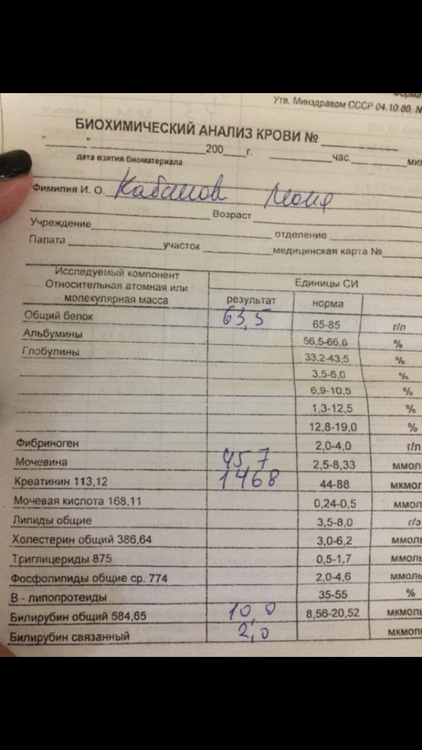 Утв. Минздравом СССР 04.10.80. №
БИОХИМИЧЕСКИЙ АНАЛИЗ КРОВИ №
"____" ____ 200__ г. ____ час. ____ мин
дата взятия биоматериала
Фамилия И. О.
Возраст
Учреждение отделение
Палата участок медицинская карта №
Исследуемый компонент
Относительная атомная или
молекулярная масса
результат
Единицы СИ
норма
Общий белок 63,5 65-85 г/л
Альбумины 56,5-66,8 %
Глобулины 33,2-43,5 %
3,5-6,0 %
6,9-10,5 %
1,3-12,5 %
12,8-19,0 %
Фибриноген 2,0-4,0 г/л
Мочевина 45,7 2,5-8,33 ммол
Креатинин 113,12 1468 44-88 мкмол
Мочевая кислота 168,11 0,24-0,5 ммол
Липиды общие 3,5-8,0 г/
Холестерин общий 386,64 3,0-6,2 ммоль
Триглицериды 875 0,5-1,7 ммоль
Фосфолипиды общие ср. 774 2,0-4,6 ммоль
В - липопротеиды 35-55 %
Билирубин общий 584,65 10,0 8,56-20,52 мкмоль
Билирубин связанный 2,0 мкмол